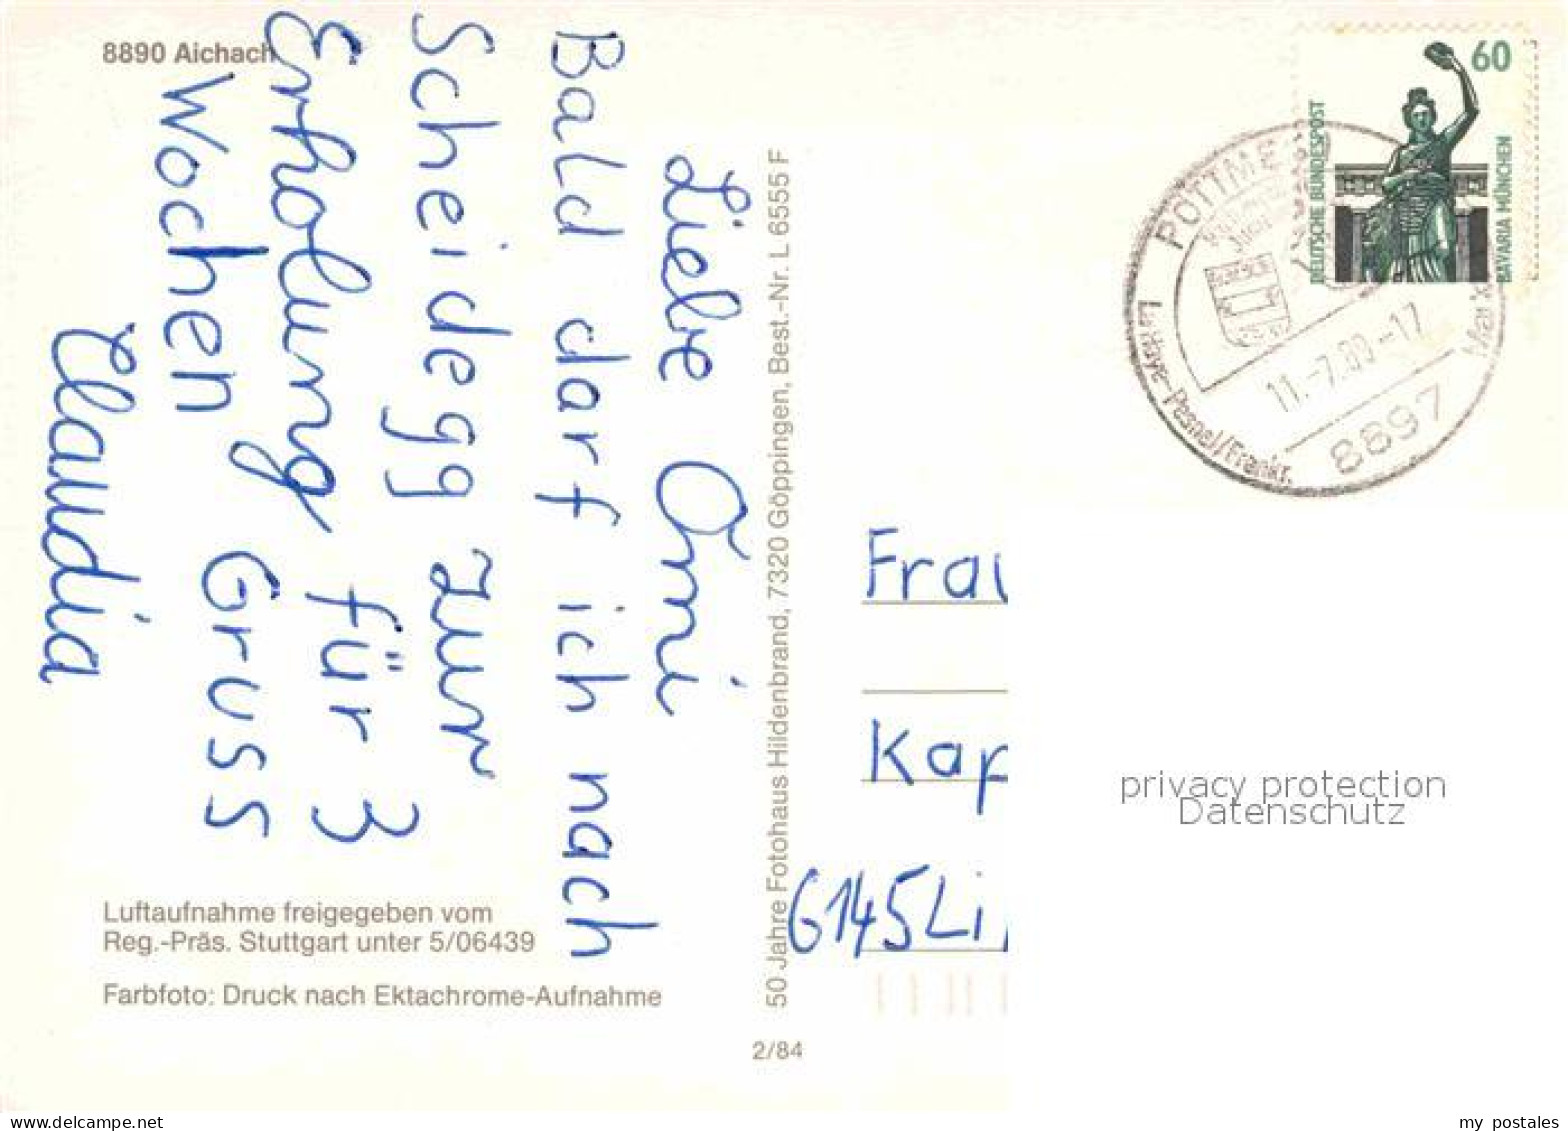 8890 Aichach
Liebe Omi
Bald darf ich nach
Scheidegg zur
Erholung für 3
Wochen Gruss
Claudia
Luftaufnahme freigegeben vom
Reg.-Präs. Stuttgart unter 5/06439
Farbfoto: Druck nach Ektachrome-Aufnahme
50 Jahre Fotohaus Hildenbrand, 7320 Göppingen, Best.-Nr. L 6555 F
2/84
60
DEUTSCHE BUNDESPOST
BAVARIA MÜNCHEN
PÖTTME
Mark
8897
Pesmel/Frankr.
Frau
Kap
6145 Li
privacy protection
Datenschutz
my postales